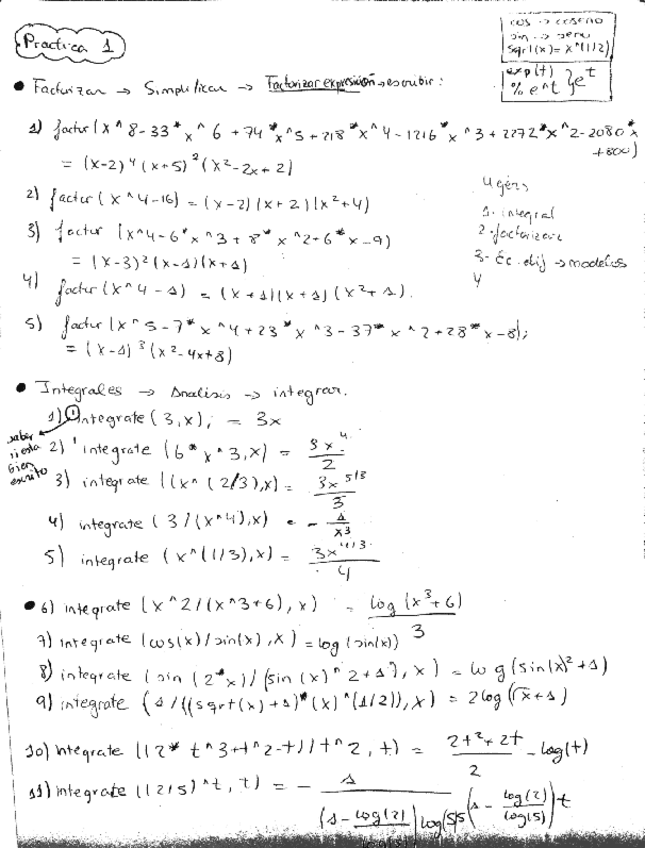 Practica 1
cos -> coseno
sin -> seno
sqrt(x) = x^(1/2)
exp(t)
% e^t } e^t
• Factorizar → Simplificar → Factorizar expresión → escribir:
1) factor(x^8-33*x^6+74*x^5+218*x^4-1216*x^3+2272*x^2-2080*x
+800)
= (x-2)^4 (x+5)^2 (x^2-2x+2)
2) factor(x^4-16) = (x-2)(x+2)(x^2+4)
3) factor (x^4-6*x^3+8*x^2+6*x-9)
= (x-3)^2 (x-1)(x+1)
4) factor(x^4-1) = (x+1)(x+1)(x^2+1).
5) factor(x^5-7*x^4+23*x^3-37*x^2+28*x-8);
= (x-1)^3 (x^2-4x+8)
1- integral
2- factorizar
3- Ec. dif → modelos
4
• Integrales → Analisis → integrar.
1) 'integrate(3,x); = 3x
saber
si esta
bien
escrito
2) 'integrate (6*x^3,x) = 3x^4/2
3) integrate ((x^(2/3),x) = 3x^5/3/3
4) integrate (3/(x^4),x) = -1/x^3
5) integrate (x^(1/3),x) = 3x^4/3/4
• 6) integrate (x^2/(x^3+6), x) = log(x^3+6)/3
7) integrate (cos(x)/sin(x),x) = log(sin(x))
8) integrate (sin(2*x)/(sin(x)^2+1), x) = log(sin(x)^2+1)
9) integrate (1/((sqrt(x)+1)*(x)^(1/2)), x) = 2log(√x+1)
10) integrate ((2*t^3+t^2-t)/t^2, t) = 2t^2+2t/2 - log(t)
11) integrate ((2/5)^t, t) = - 1/(1-log(2)/log(5)) log(5)5^(1-log(2)/log(5))t